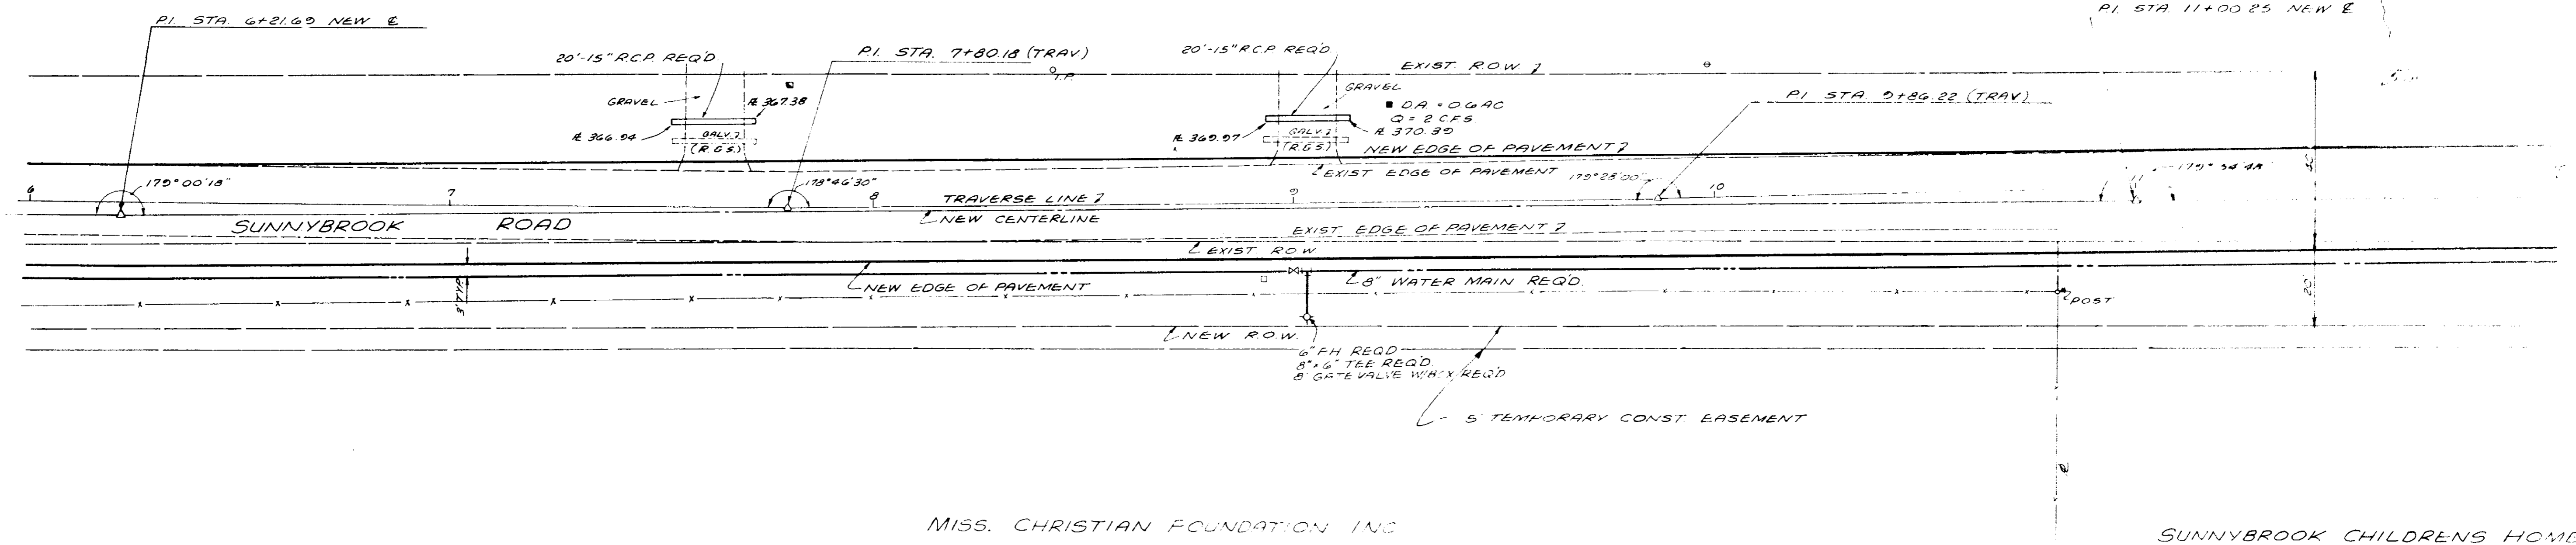 P.I. STA. 6+21.69 NEW ℄
P.I. STA. 11+00.25 NEW ℄
20'-15" R.C.P. REQ'D.
P.I. STA. 7+80.18 (TRAV)
20'-15" R.C.P. REQ'D.
EXIST. R.O.W.
T.P.
GRAVEL
℄ 367.38
GRAVEL
DA = 0.6 AC
Q = 2 CFS.
P.I. STA. 9+86.22 (TRAV)
℄ 366.94
GALV.
(R.&S.)
℄ 369.97
GALV.
(R.&S)
℄ 370.39
NEW EDGE OF PAVEMENT
EXIST EDGE OF PAVEMENT
179°00'18"
178°46'30"
179°28'00"
179° 34' 48"
6
7
8
9
10
TRAVERSE LINE
NEW CENTERLINE
SUNNYBROOK ROAD
EXIST EDGE OF PAVEMENT
EXIST ROW
NEW EDGE OF PAVEMENT
8" WATER MAIN REQ'D.
POST
NEW R.O.W.
6" FH REQD
8"x6" TEE REQ'D.
8" GATE VALVE W/BOX REQ'D
5' TEMPORARY CONST. EASEMENT
MISS. CHRISTIAN FOUNDATION INC
SUNNYBROOK CHILDRENS HOME